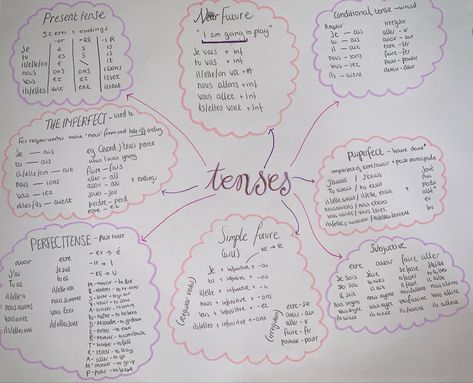 Present tense
Stem + endings
-er -RE -IR
Je e s is
tu es s is
il/elle/on e it
nous ons ons issons
vous ez ez issez
ils/elles ent ent issent
Near Future
"I am going to play"
Je vais + inf
tu vas + inf
il/elle/on va + inf
nous allons + inf
vous allez + inf
ils/elles vont + inf
Conditional tense - would
Regular
Je — ais
tu — ais
il — ait
nous — ions
vous — iez
ils — aient
irregular
aller - ir
avoir - aur
être - ser
faire - fer
pouvoir - pour
devoir - devr
THE IMPERFECT - used to
For regular verbs take "nous" form and take off ending
eg. Quand j'étais petite
when I was young
Je — ais
tu — ais
il/elle/on — ait
nous — ions
vous — iez
elles/ils — aient
faire - fais
aller - all
avoir - av
+ endings
perdre - perd
être - ét
tenses
Pluperfect - "have done"
J'avais / J'étais
Tu avais / tu étais
il/elle avait / il/elle était
nous avions / nous étions
vous aviez / vous étiez
ils/elles avaient / ils/elles étaient
joué
fini
perdu
allé
eu
bu
PERFECT TENSE - past tense
avoir
J'ai
tu as
il/elle a
nous avons
vous avez
ils/elles ont
être
Je suis
tu es
il/elle est
nous sommes
vous êtes
ils/elles sont
-er → é
-ir → i
-RE → u
M - mourir - to die
R - rester - to stay
S - sortir - to go out
V - venir - to come
A - arriver - to arrive
N - naître - to be born
D - descendre - to go down
E - entrer - to enter
R - rentrer
T - tomber - to fall
R - retourner
A - aller - to go
M - monter - to go up
P - partir - to leave
Simple Future
(will)
RE → R
(regular verbs)
Je + infinitive + -ai
tu + infinitive + -as
il/elle + infinitive + -a
nous + infinitive + -ons
vous + infinitive + -ez
ils/elles + infinitive + -ont
(irregular)
être - ser
avoir - aur
aller - ir
faire - fer
pouvoir - pour
Subjunctive
être avoir faire aller
Je sois
tu sois
il soit
nous soyons
vous soyez
ils soient
J'aie
tu aies
il ait
nous ayons
vous ayez
ils aient